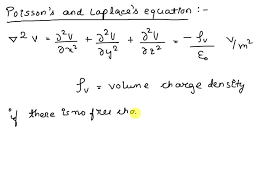 Poisson's and Laplace's equation :-
∇² V = ∂²V/∂x² + ∂²V/∂y² + ∂²V/∂z² = -ρᵥ/ε₀ V/m²
ρᵥ = volume charge density
if there is no free cha